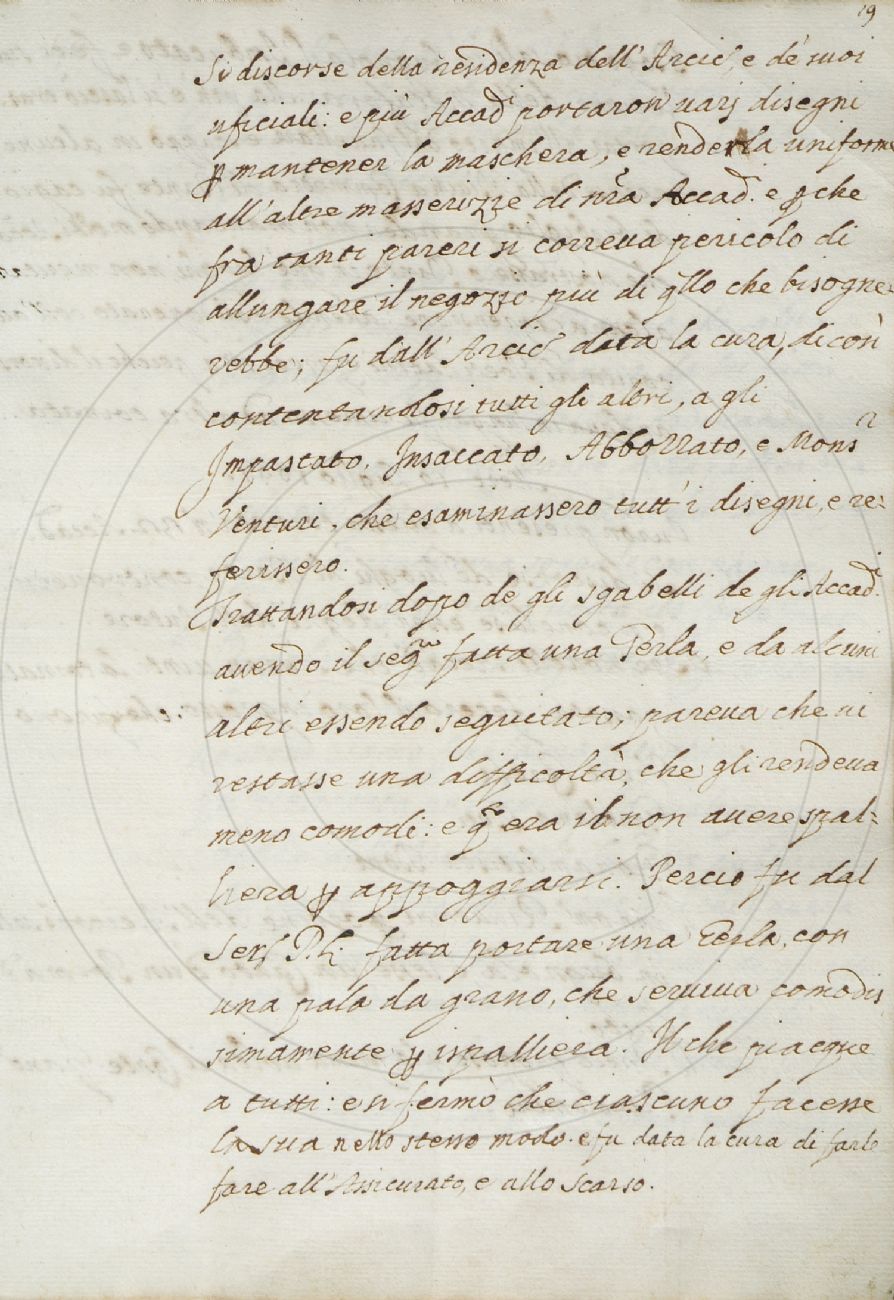 19
Si discorse della residenza dell' Arcic.o, e de' suoi
uficiali: e più Accad.i portaron varj disegni
ꝑ mantener la maschera, e renderla uniforme
all' altre masserizie di nr̃a Accad. e ꝑche
fra tanti pareri si correva pericolo di
allungare il negozio più di q̃llo che bisogne=
rebbe; fu dall' Arcic.o data la cura, di così
contentandosi tutti gli altri, a gli
Impastato, Insaccato, Abborrato, e Mons.r
Venturi, che esaminassero tutt' i disegni, e re=
ferissero.
Trattandosi dopo de gli sgabelli de gli Accad.i
avendo il seg.rio fatta una Gerla, e da alcuni
altri essendo seguitato; pareva che vi
restasse una difficoltà, che gli rendeva
meno comodi: e q.sta era il non avere spal=
liera ꝑ appoggiarsi. Perciò fu dal
Ser.mo P. L. fatta portare una Gerla, con
una pala da grano, che serviva comodis
simamente ꝑ ispalliera. Il che piacque
a tutti: e si fermò che ciascuno facesse
la sua nello stesso modo. e fu data la cura di farle
fare all' Assicurato, e allo Scarso.